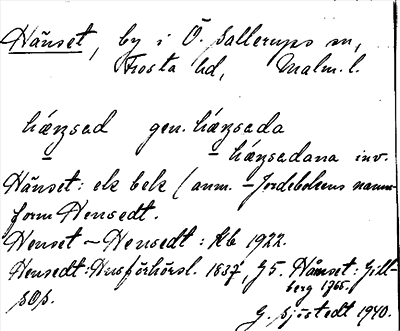 Hänset, by i Ö. Sallerups sn,
Frosta hd, Malm. l.
hæŋsad gen. hæŋsada
hæŋsadana inv.
Hänset: ek bek (anm. Jordebokens namn-
form Hensedt.
Henset ~ Hensedt: Kb 1922.
Hensedt: Husförhörsl. 1837, G5. Hänset: Gill-
berg 1765.
G. Sjöstedt 1940.